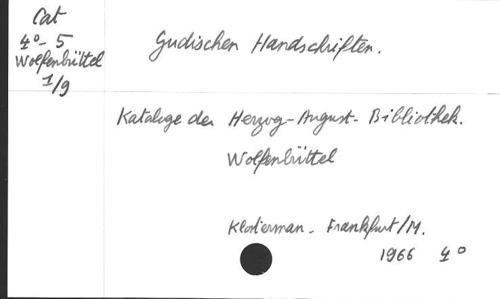 Cat
4°- 5
Wolfenbüttel
1/9
Gudischen Handschriften.
Kataloge der Herzog-August-Bibliothek.
Wolfenbüttel
Klosterman - Frankfurt/M.
1966 4°